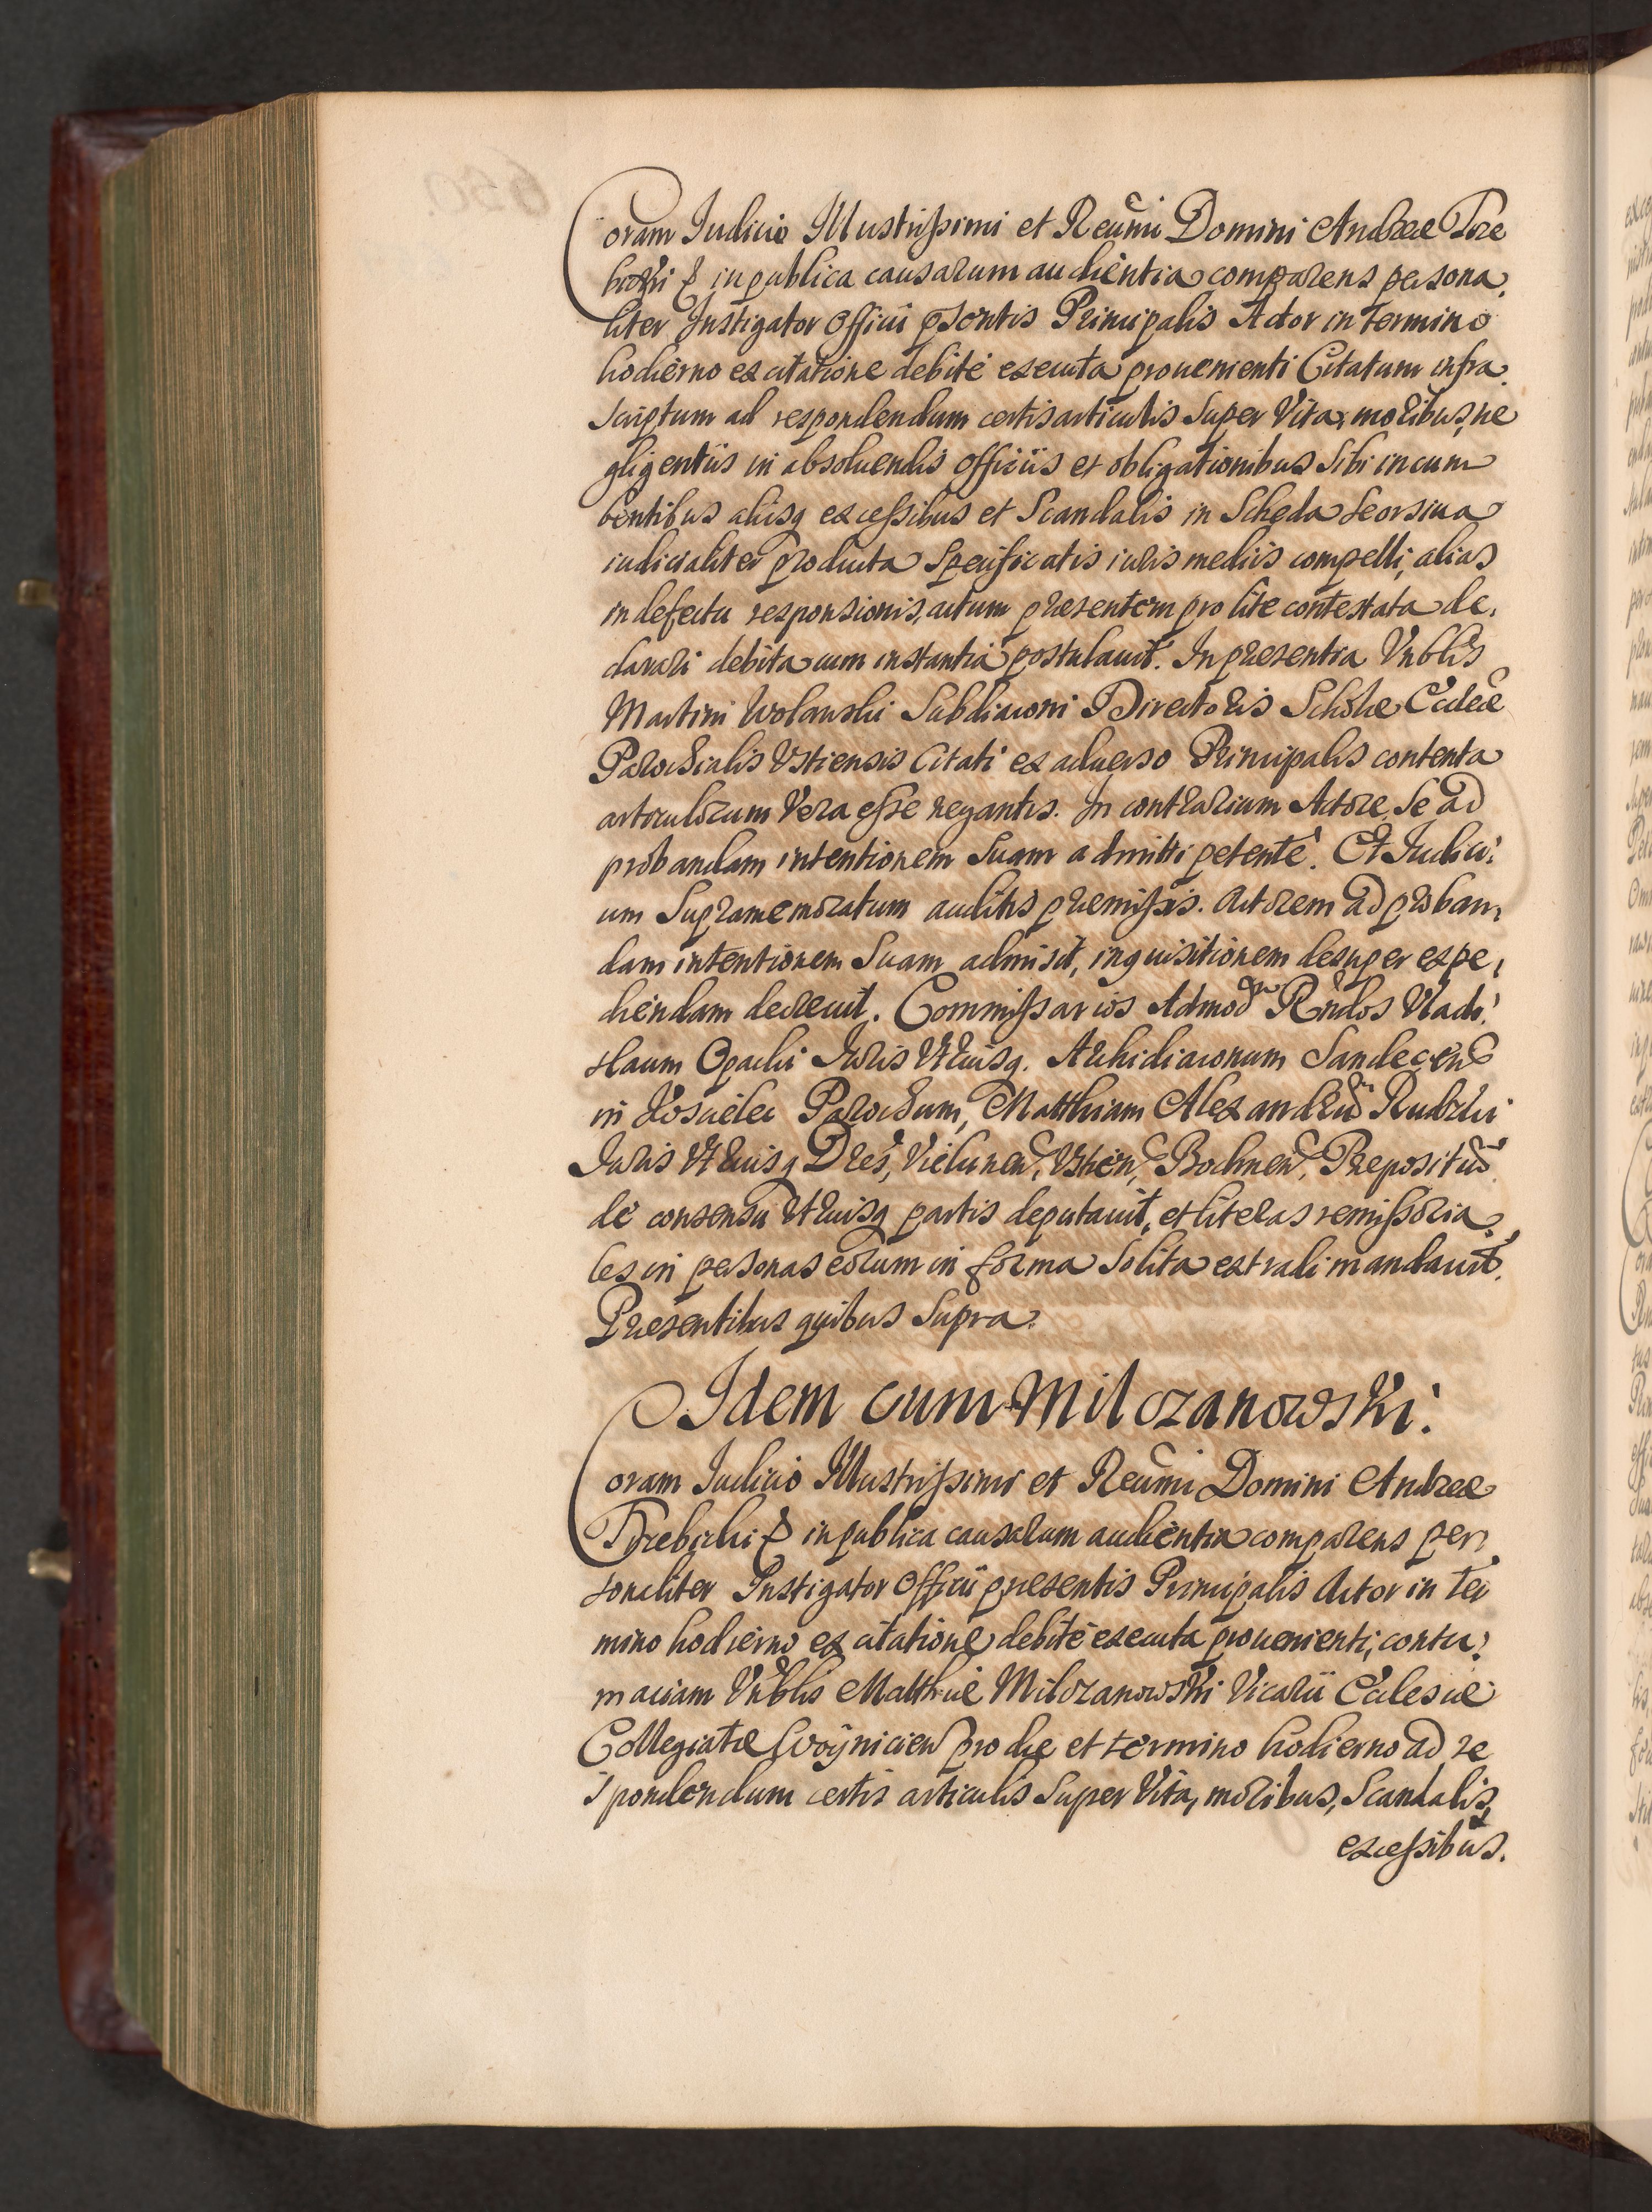 Coram Iudicio Illustrissimi et Reũmi Domini Andreæ Tre
bicki & in publica causarum audientia comparens persona,
liter Instigator Officii p̃sentis Principalis Actor in termino
hodierno ex citatione debite executa prouenienti Citatum infra,
scriptum ad respondendum certis articulis super Vita, moribus, ne
gligentiis in absoluendis officiis et obligationibus sibi incum
bentibus aliisq excessibus et Scandalis in Scheda seorsiua
iudicialiter producta specificatis iuris mediis compelli, alias
in defectu responsionis, actum præsentem pro lite contestata de,
clarari debita cum instantia postulauit. In præsentia Vnblis
Martini Wolanski Subdiaconi Directoris Scholæ Ecclæ
Parochialis Vstiensis Citati ex aduerso Principalis contenta
articulorum Vera esse negantis. In contrarium Actore, Se ad
probandam intentionem Suam admitti petente. Et Iudici,
um Supramemoratum auditis præmissis. Actorem ad proban,
dam intentionem Suam admisit, inquisitionem desuper expe,
diendam decreuit. Commissarios Admod Rndos Vladi,
slaum Opacki Iuris Vtriusq. Archidiaconum Sandecen
in Parochum, Matthiam Alexandrũ Rudzki
Iuris Vtriusq Dres, Vielunen, Vstien, Bochnen, Præpositũ
de consensu Vtriusq partis deputauit, et literas remissoria,
les in personas eorum in forma Solita extradi mandauit.
Præsentibus quibus Supra.
Idem cum Milczanowski.
Coram Iudicio Illustrissimi et Reũmi Domini Andreæ
Trebicki & in publica causarum audientia comparens per,
sonaliter Instigator Officii præsentis Principalis Actor in ter
mino hodierno ex citatione debite executa prouenienti, contu,
maciam Vnblis Matthiæ Milczanowski Vicarii Ecclesiæ
Collegiatæ Woynicien pro die et termino hodierno ad re
spondendum certis articulis Super Vita, moribus, Scandalis,
excessibus.